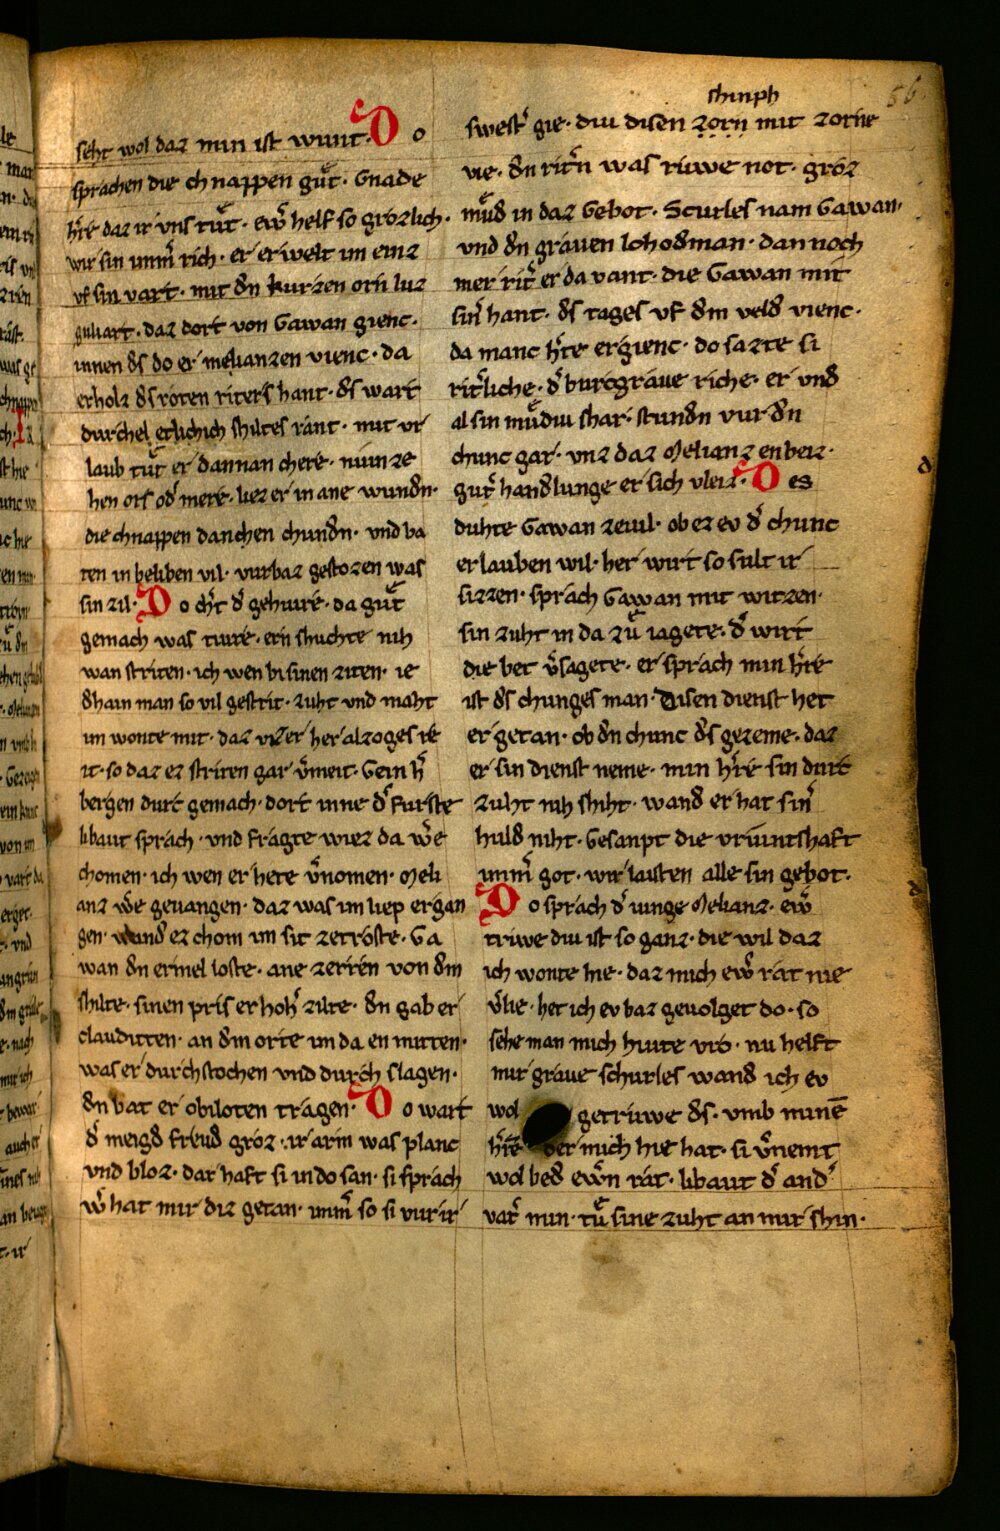 seht wol daz min ist wunt · Do
sprachen die chnappen gůt · Gnade
h̾re daz ir vns tůt · ew̾ helf so grozlich ·
wir sin imm̾ rich · er erwelt im einz
vf sin vart · mit dn kurzen orn luz
guliart · daz dort von Gawan gienc ·
innen ds do er melianzen vienc · da
erholz ds roten riters hant · ds wart
durchel etlichich shiltes rant · mit vr
laub tůt er dannan chere · niunze
hen ors od̾ mere · liez er in ane wundn ·
die chnappen danchen chundn · vnd ba
ten in beliben vil · vurbaz gestozen was
sin zil · Do ch̾t d̾ gehiure · da gůt
gemach was tiure · ern shuchte nih
wan striten · ich wen bi sinen ziten · ie
dhain man so vil gestrit · zuht vnd maht
im wonte mit · daz vzer her alzoges re
it · so daz ez striten gar v̾meit · Gein h̾
bergen durt gemach · dort inne d̾ furste
libaut sprach · vnd fragte wiez da w̾e
chomen · ich wen er hete v̾nomen · Meli
anz w̾e geuangen · daz was im liep ergan
gen · wand ez chom im sit ze troste · Ga
wan dn ermel loste · ane zerren von dm
shilte · sinen pris er hoh̾ zilte · dn gab er
clauditten · an dm orte im da en mitten ·
was er durchstochen vnd durch slagen ·
dn bat er obiloten tragen · Do wart
d̾ meigd freud groz · ir arm was planc
vnd bloz · dar haft si in do san · si sprach
w̾ hat mir diz getan · imm̾ so si vur ir
shinph
swest̾ gie · diu disen zorn mit zorne
vie · dn rit̾n was riuwe not · groz
můd in daz Gebot · Scurles nam Gawan ·
vnd dn grauen lohodman · dannoch
mer rit̾ er da vant · die Gawan mit
sin̾ hant · ds tages vf dm veld vienc ·
da manc h̾te ergienc · do sazte si
rit̾liche · d̾ burcgraue riche · er vnd
al sin můdiu shar · stundn vur dn
chunc gar · vnz daz Melianz enbeiz ·
gut̾ handlunge er sich vleiz · Des
duhte Gawan zeuil · ob ez ev d̾ chunc
erlauben wil · her wirt so sult ir
sizzen · sprach Gawan mit witzen ·
sin zuht in da zů iagete · d̾ wirt
die bet v̾sagete · er sprach min h̾re
ist ds chunges man · Disen dienst het
er getan · ob dn chunc ds gezeme · daz
er sin dienst neme · min h̾re sin durt
zuht nih shiht · wand er hat sin̾
huld niht · Gesanpt die vriuntshaft
imm̾ got · wir laisten alle sin gebot ·
Do sprach d̾ iunge Melianz · ew̾
triwe diu ist so ganz · die wil daz
ich wonte hie · daz mich ew̾ rat nie
v̾lie · het ich ev baz geuolget do · so
sehe man mich hiute vro · nu helft
mir graue schurles wand ich ev
wol getriuwe ds · vmb minē
h̾re der mich hie hat · si v̾nemt
wol bed ew̾n rat · libaut d̾ and̾
vat̾ min · tů sine zuht an mir shin ·